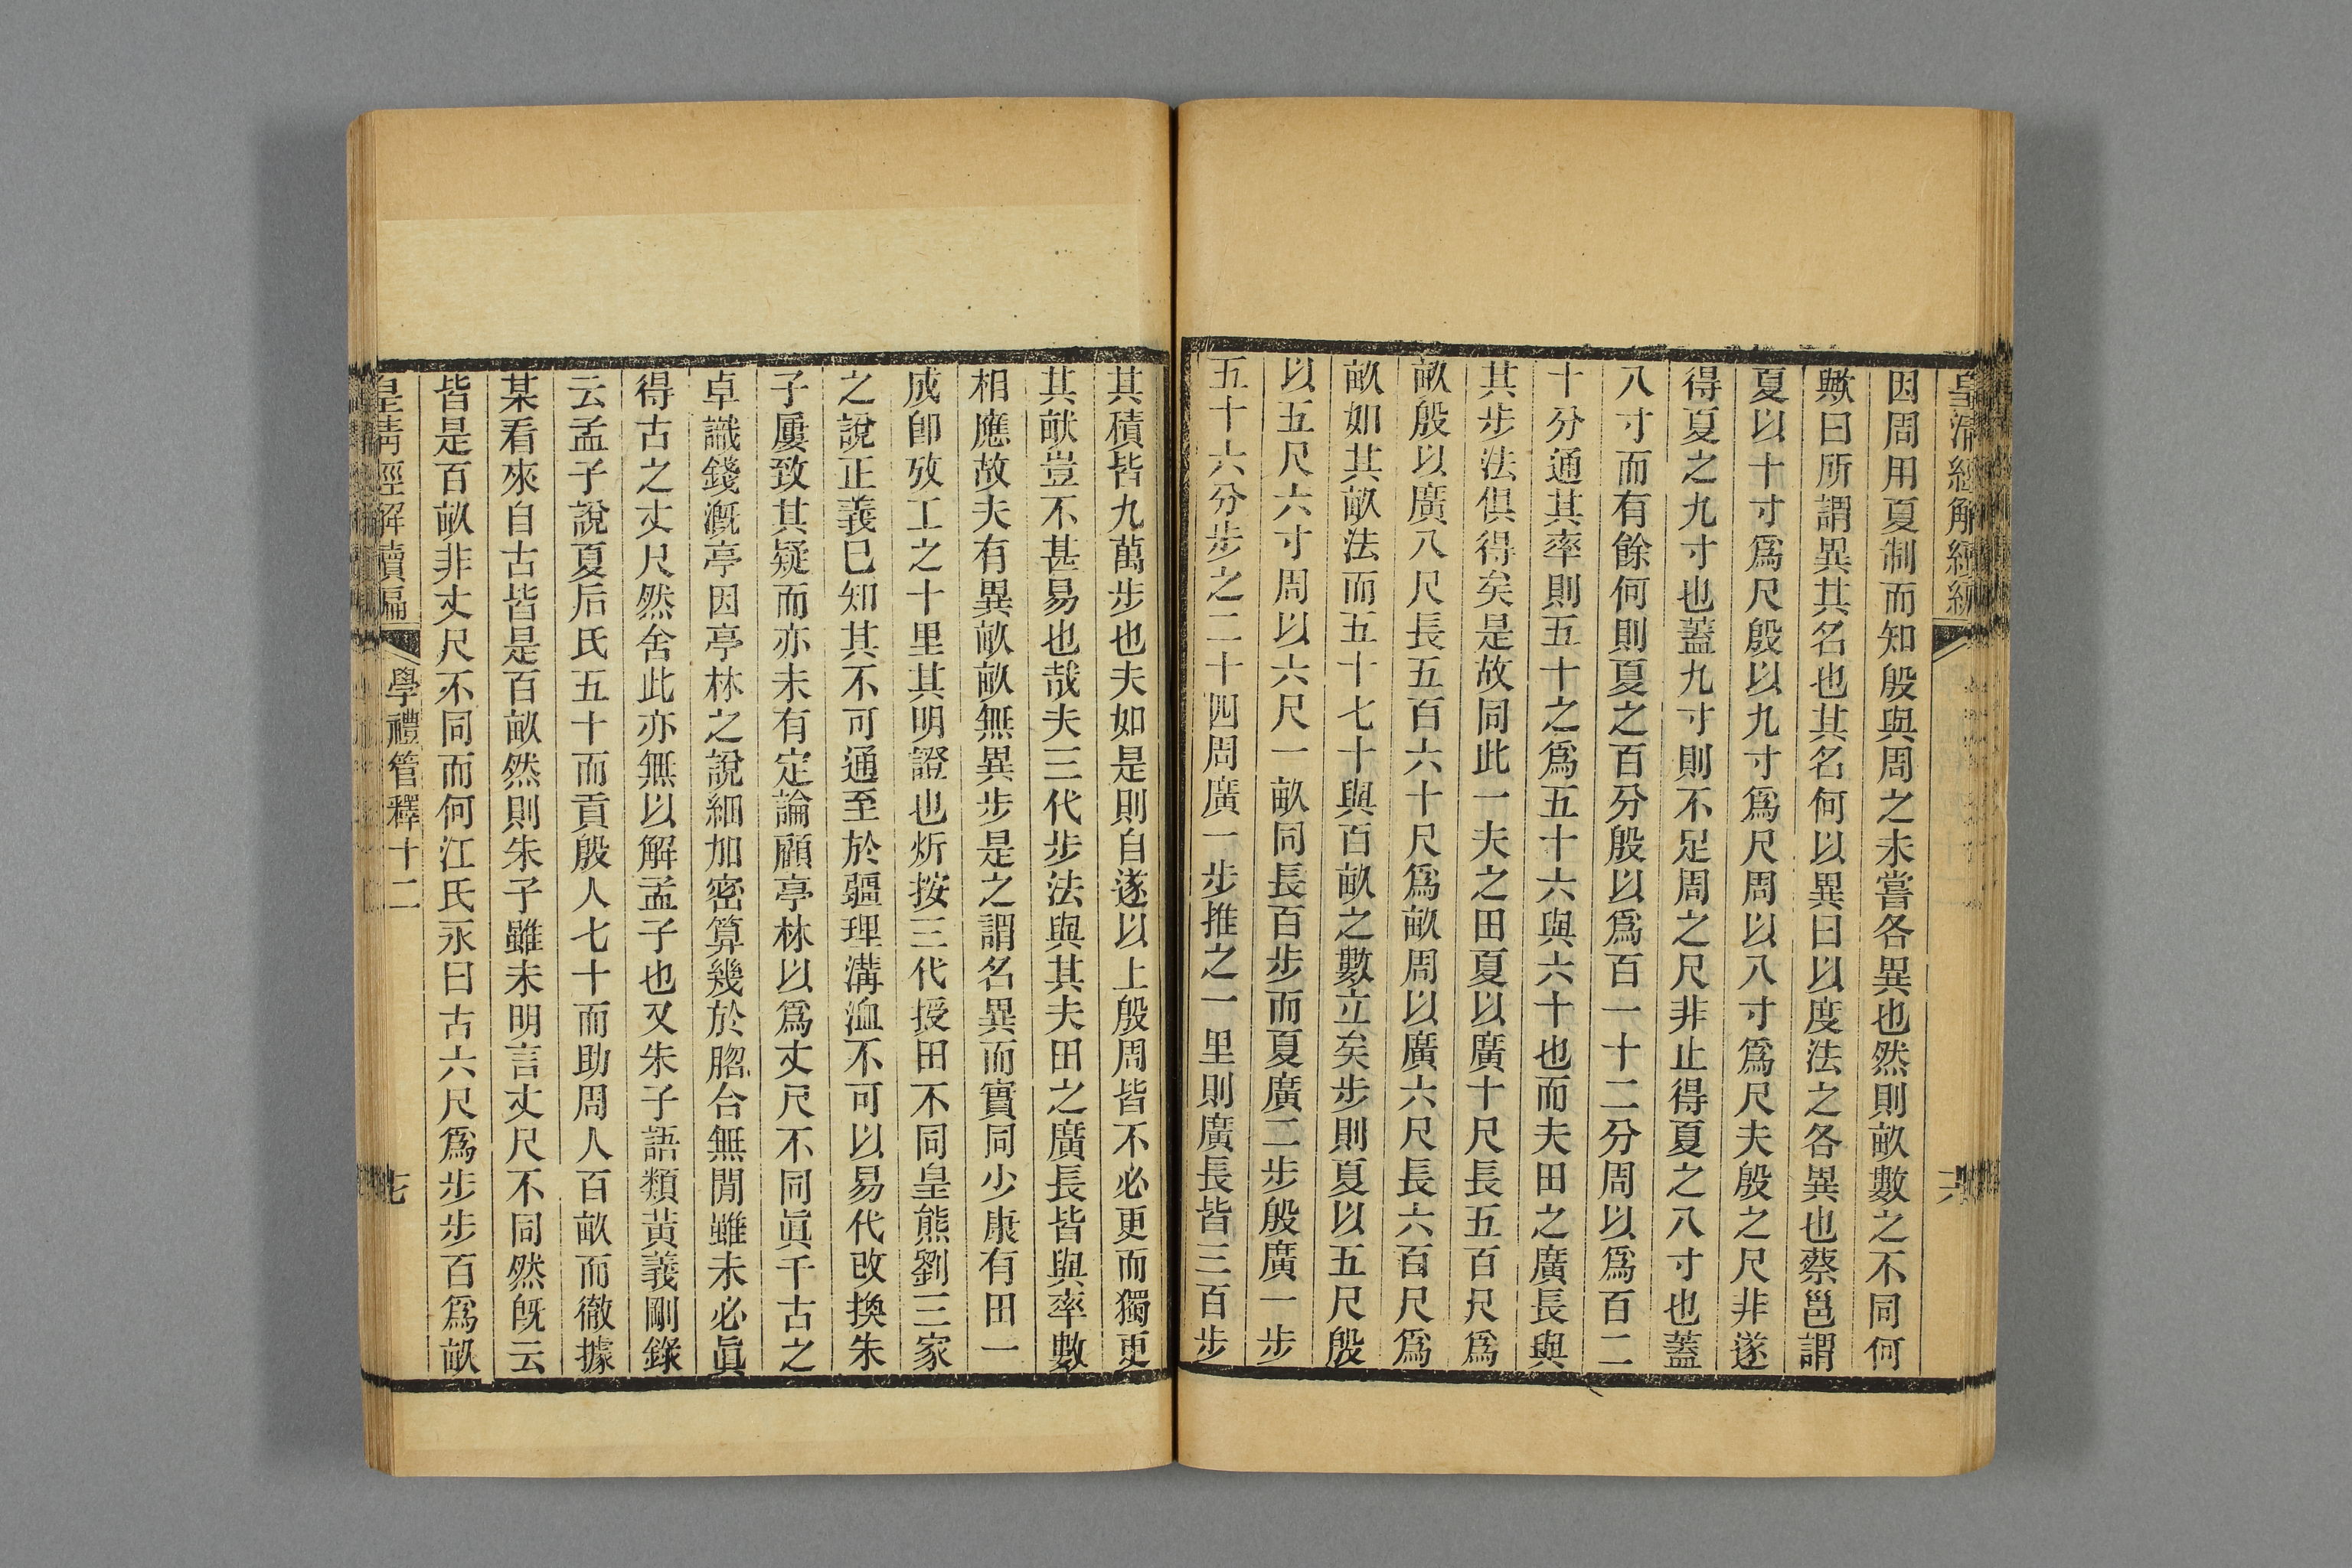 皇清經解續編
六
因周用夏制而知殷與周之未嘗各異也然則畝數之不同何
歟曰所謂異其名也其名何以異曰以度法之各異也蔡邕謂
夏以十寸爲尺殷以九寸爲尺周以八寸爲尺夫殷之尺非遂
得夏之九寸也蓋九寸則不足周之尺非止得夏之八寸也蓋
八寸而有餘何則夏之百分殷以爲百一十二分周以爲百二
十分通其率則五十之爲五十六與六十也而夫田之廣長與
其步法俱得矣是故同此一夫之田夏以廣十尺長五百尺爲
畝殷以廣八尺長五百六十尺爲畝周以廣六尺長六百尺爲
畝如其畝法而五十七十與百畝之數立矣步則夏以五尺殷
以五尺六寸周以六尺一畝同長百步而夏廣二步殷廣一步
五十六分步之二十四周廣一步推之一里則廣長皆三百步
其積皆九萬步也夫如是則自遂以上殷周皆不必更而獨更
其畎豈不甚易也哉夫三代步法與其夫田之廣長皆與率數
相應故夫有異畝畝無異步是之謂名異而實同少康有田一
成卽攷工之十里其明證也炘按三代授田不同皇熊劉三家
之說正義已知其不可通至於疆理溝洫不可以易代改換朱
子屢致其疑而亦未有定論顧亭林以爲丈尺不同眞千古之
卓識錢漑亭因亭林之說細加密算幾於脗合無閒雖未必眞
得古之丈尺然舍此亦無以解孟子也又朱子語類黃義剛錄
云孟子說夏后氏五十而貢殷人七十而助周人百畝而徹據
某看來自古皆是百畝然則朱子雖未明言丈尺不同然旣云
皆是百畝非丈尺不同而何江氏永曰古六尺爲步步百爲畝
皇清經解續編
學禮管釋十二
七